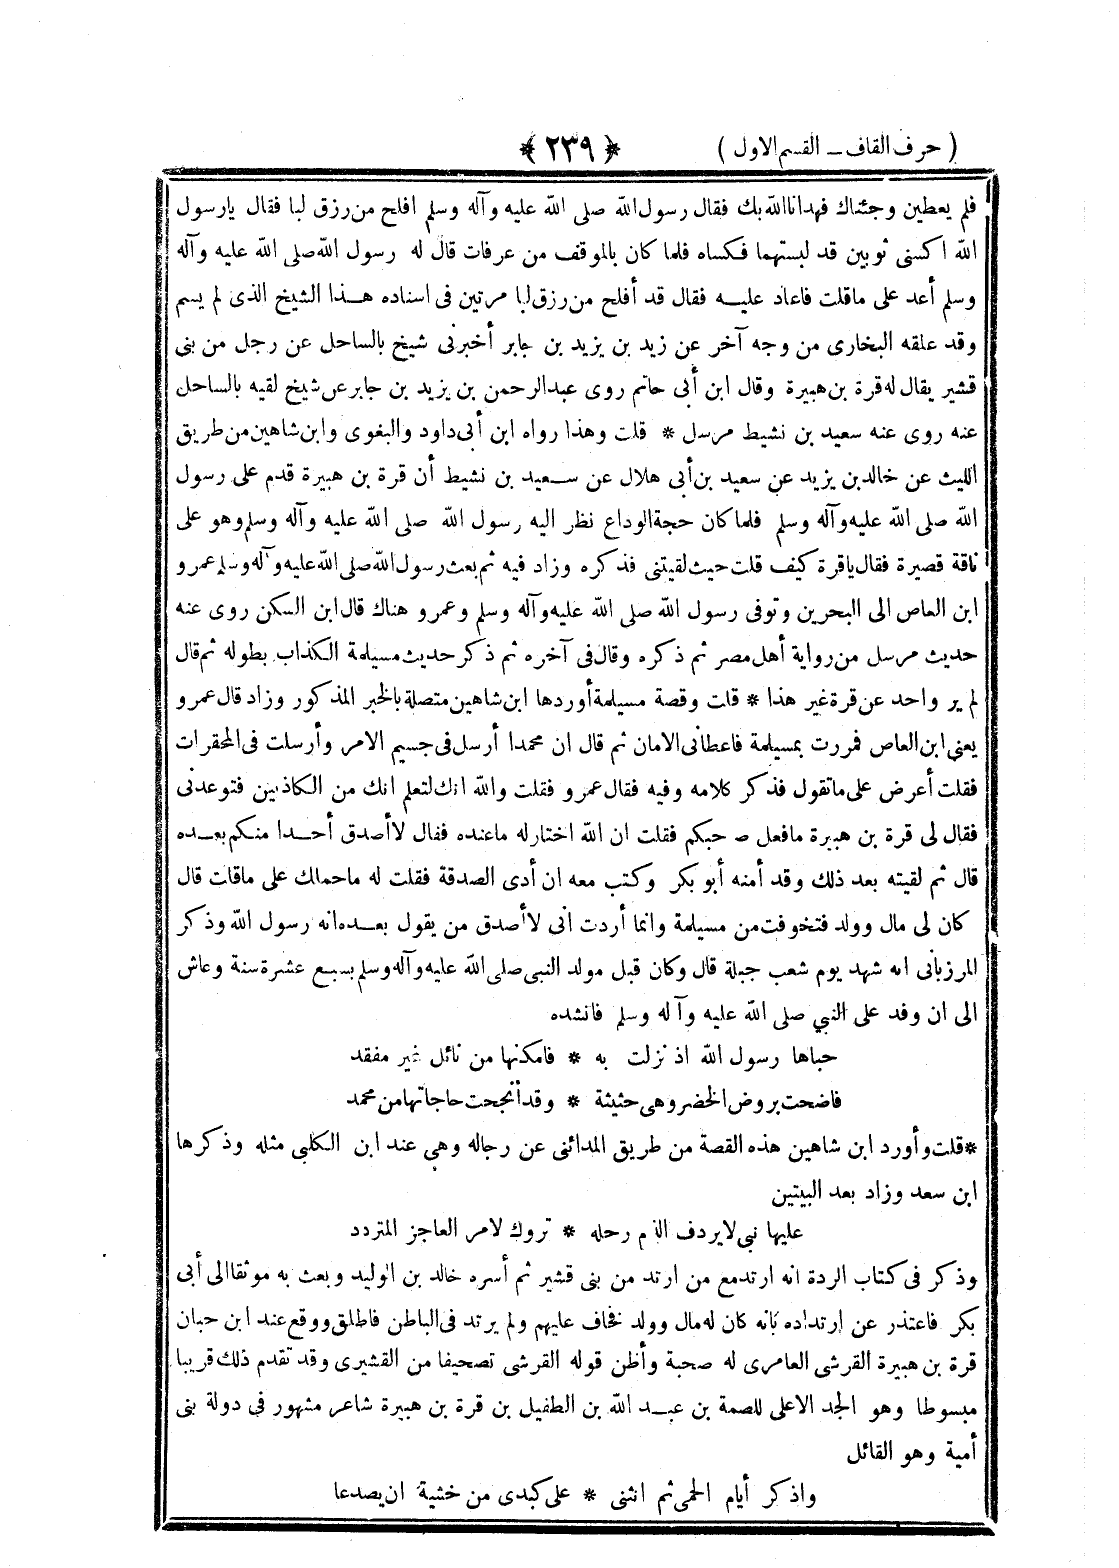 ( حرف القاف ـ القسم الاول ) ﴿ ٢٣٩ ﴾
فلم يعطين وجئناك فهدانا الله بك فقال رسول الله صلى الله عليه وآله وسلم افلح من رزق لبا فقال يارسول
الله اكسنى ثوبين قد لبستهما فكساه فلما كان بالموقف من عرفات قال له رسول الله صلى الله عليه وآله
وسلم أعد على ماقلت فاعاد عليه فقال قد أفلح من رزق لبا مرتين فى اسناده هذا الشيخ الذى لم يسم
وقد علقه البخارى من وجه آخر عن زيد بن يزيد بن جابر أخبرنى شيخ بالساحل عن رجل من بنى
قشير يقال له قرة بن هبيرة وقال ابن أبى حاتم روى عبدالرحمن بن يزيد بن جابر عن شيخ لقيه بالساحل
عنه روى عنه سعيد بن نشيط مرسل * قلت وهذا رواه ابن أبى داود والبغوى وابن شاهين من طريق
الليث عن خالد بن يزيد عن سعيد بن أبى هلال عن سعيد بن نشيط أن قرة بن هبيرة قدم على رسول
الله صلى الله عليه وآله وسلم فلما كان حجة الوداع نظر اليه رسول الله صلى الله عليه وآله وسلم وهو على
ناقة قصيرة فقال ياقرة كيف قلت حيث لقيتنى فذكره وزاد فيه ثم بعث رسول الله صلى الله عليه وآله وسلم عمرو
ابن العاص الى البحرين وتوفى رسول الله صلى الله عليه وآله وسلم وعمرو هناك قال ابن السكن روى عنه
حديث مرسل من رواية أهل مصر ثم ذكره وقال فى آخره ثم ذكر حديث مسيلمة الكذاب بطوله ثم قال
لم ير واحد عن قرة غير هذا * قلت وقصة مسيلمة أوردها ابن شاهين متصلة بالخبر المذكور وزاد قال عمرو
يعني ابن العاص فمررت بمسيلمة فاعطانى الامان ثم قال ان محمدا أرسل فى جسيم الامر وأرسلت فى المحقرات
فقلت أعرض على ماتقول فذكر كلامه وفيه فقال عمرو فقلت والله انك لتعلم انك من الكاذبين فتوعدنى
فقال لى قرة بن هبيرة مافعل صاحبكم فقلت ان الله اختار له ماعنده فقال لا أصدق أحدا منكم بعده
قال ثم لقيته بعد ذلك وقد أمنه أبو بكر وكتب معه ان أدى الصدقة فقلت له ماحملك على ماقلت قال
كان لى مال وولد فتخوفت من مسيلمة وانما أردت انى لا أصدق من يقول بعده انه رسول الله وذكر
المرزبانى انه شهد يوم شعب جبلة قال وكان قبل مولد النبى صلى الله عليه وآله وسلم بسبع عشرة سنة وعاش
الى ان وفد على النبي صلى الله عليه وآله وسلم فانشده
حباها رسول الله اذ نزلت به * فامكنها من نائل غير مفقد
فاضحت بروض الخضر وهى حثيثة * وقد أنجحت حاجاتها من محمد
* قلت وأورد ابن شاهين هذه القصة من طريق المدائنى عن رجاله وهي عند ابن الكلبي مثله وذكرها
ابن سعد وزاد بعد البيتين
عليها نبى لا يردف الذم رحله * تروك لامر العاجز المتردد
وذكر فى كتاب الردة انه ارتد مع من ارتد من بنى قشير ثم أسره خالد بن الوليد وبعث به موثقا الى أبى
بكر فاعتذر عن إرتداده بانه كان له مال وولد فخاف عليهم ولم يرتد فى الباطن فاطلق ووقع عند ابن حبان
قرة بن هبيرة القرشى العامرى له صحبة وأظن قوله القرشى تصحيفا من القشيرى وقد تقدم ذلك قريبا
مبسوطا وهو الجد الاعلى للصمة بن عبد الله بن الطفيل بن قرة بن هبيرة شاعر مشهور فى دولة بنى
أمية وهو القائل
واذكر أيام الحمى ثم انثنى * على كبدى من خشية ان يصدعا